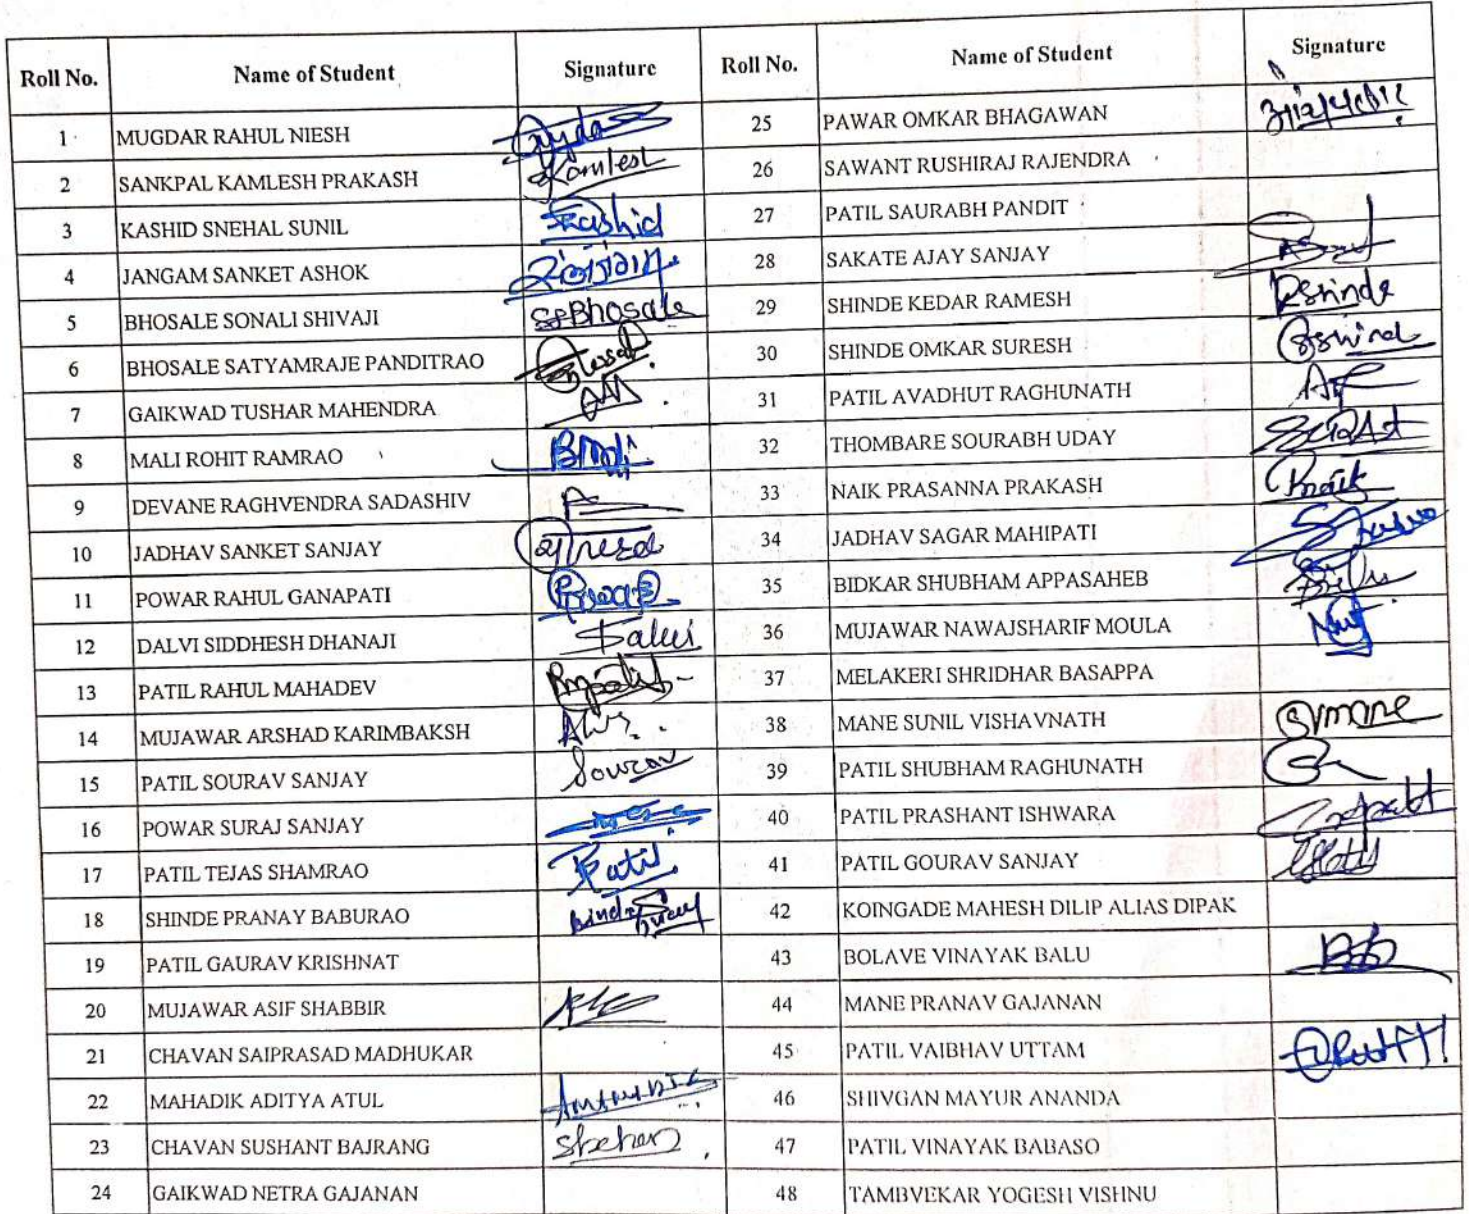 Roll No. Name of Student Signature Roll No. Name of Student Signature
1 MUGDAR RAHUL NIESH 25 PAWAR OMKAR BHAGAWAN
2 SANKPAL KAMLESH PRAKASH Kamlesh 26 SAWANT RUSHIRAJ RAJENDRA
3 KASHID SNEHAL SUNIL Kashid 27 PATIL SAURABH PANDIT
4 JANGAM SANKET ASHOK 28 SAKATE AJAY SANJAY
5 BHOSALE SONALI SHIVAJI SSBhosale 29 SHINDE KEDAR RAMESH
6 BHOSALE SATYAMRAJE PANDITRAO 30 SHINDE OMKAR SURESH
7 GAIKWAD TUSHAR MAHENDRA 31 PATIL AVADHUT RAGHUNATH
8 MALI ROHIT RAMRAO 32 THOMBARE SOURABH UDAY
9 DEVANE RAGHVENDRA SADASHIV 33 NAIK PRASANNA PRAKASH
10 JADHAV SANKET SANJAY 34 JADHAV SAGAR MAHIPATI
11 POWAR RAHUL GANAPATI 35 BIDKAR SHUBHAM APPASAHEB
12 DALVI SIDDHESH DHANAJI 36 MUJAWAR NAWAJSHARIF MOULA
13 PATIL RAHUL MAHADEV 37 MELAKERI SHRIDHAR BASAPPA
14 MUJAWAR ARSHAD KARIMBAKSH 38 MANE SUNIL VISHAVNATH SVmane
15 PATIL SOURAV SANJAY Sourav 39 PATIL SHUBHAM RAGHUNATH
16 POWAR SURAJ SANJAY 40 PATIL PRASHANT ISHWARA
17 PATIL TEJAS SHAMRAO Patil 41 PATIL GOURAV SANJAY
18 SHINDE PRANAY BABURAO 42 KOINGADE MAHESH DILIP ALIAS DIPAK
19 PATIL GAURAV KRISHNAT 43 BOLAVE VINAYAK BALU
20 MUJAWAR ASIF SHABBIR 44 MANE PRANAV GAJANAN
21 CHAVAN SAIPRASAD MADHUKAR 45 PATIL VAIBHAV UTTAM
22 MAHADIK ADITYA ATUL 46 SHIVGAN MAYUR ANANDA
23 CHAVAN SUSHANT BAJRANG 47 PATIL VINAYAK BABASO
24 GAIKWAD NETRA GAJANAN 48 TAMBVEKAR YOGESH VISHNU